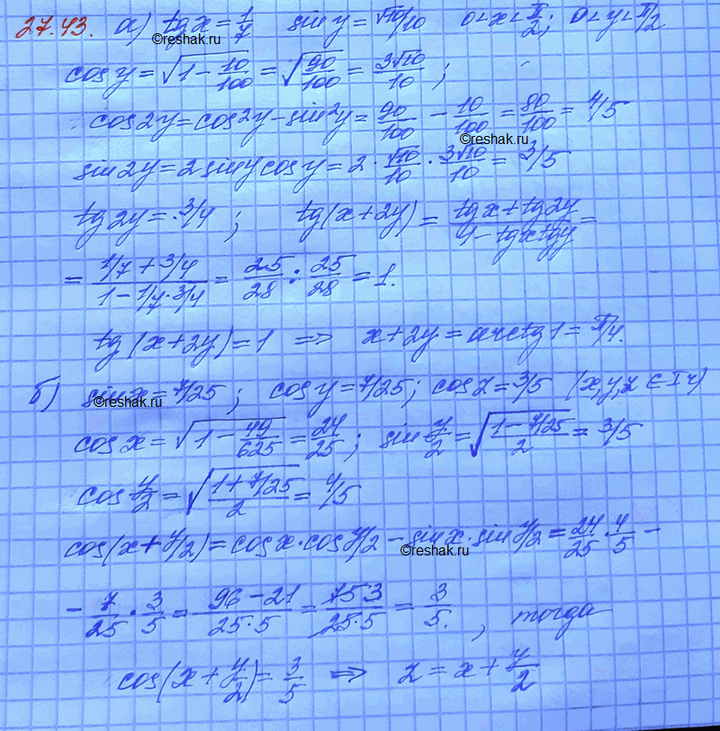 27.43. а) tg x = 1/7   sin y = √10/10   0<x<π/2; 0<y<π/2
©reshak.ru
cos y = √(1 - 10/100) = √(90/100) = 3√10/10 ;
cos2y = cos²y - sin²y = 90/100 - 10/100 = 80/100 = 4/5
©reshak.ru
sin2y = 2 sin y cos y = 2 · √10/10 · 3√10/10 = 3/5
tg 2y = 3/4 ;   tg(x+2y) = (tg x + tg 2y)/(1 - tg x tg y) =
= (1/7 + 3/4)/(1 - 1/7 · 3/4) = 25/28 : 25/28 = 1.
tg(x+2y) = 1 ⇒ x+2y = arctg 1 = π/4.
б) sin x = 7/25 ; cos y = 7/25 ; cos z = 3/5 (x,y,z ∈ I ч)
©reshak.ru
cos x = √(1 - 49/625) = 24/25 ; sin y/2 = √((1 - 7/25)/2) = 3/5
cos y/2 = √((1 + 7/25)/2) = 4/5
cos(x + y/2) = cos x · cos y/2 - sin x · sin y/2 = 24/25 · 4/5 -
©reshak.ru
- 7/25 · 3/5 = (96 - 21)/(25·5) = 75·3/(25·5) = 3/5. , тогда
cos(x + y/2) = 3/5 ⇒ z = x + y/2